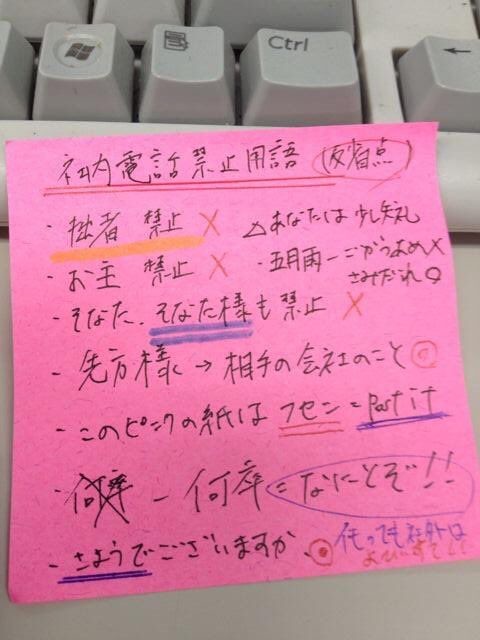 Ctrl
社内電話禁止用語 (反省点)
・拙者 禁止 × △あなたは少し失礼
・お主 禁止 × ・五月雨ーごがつあめ×
さみだれ○
・そなた、そなた様も禁止 ×
・先方様→相手の会社のこと◎
・このピンクの紙はフセン=Post it
・何卒 - 何卒=なにとぞ!!
・さようでございますか、◎
でも社外は
よびすて!!